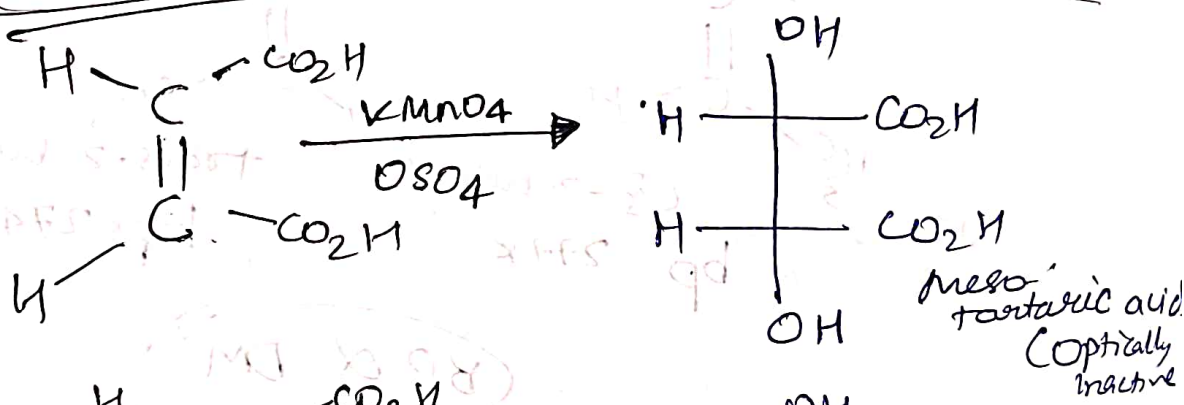 H CO2H
C
||
C CO2H
H
KMnO4
OSO4
OH
H CO2H
H CO2H
OH
meso
tartaric acid
(optically
inactive
H CO2H
OH